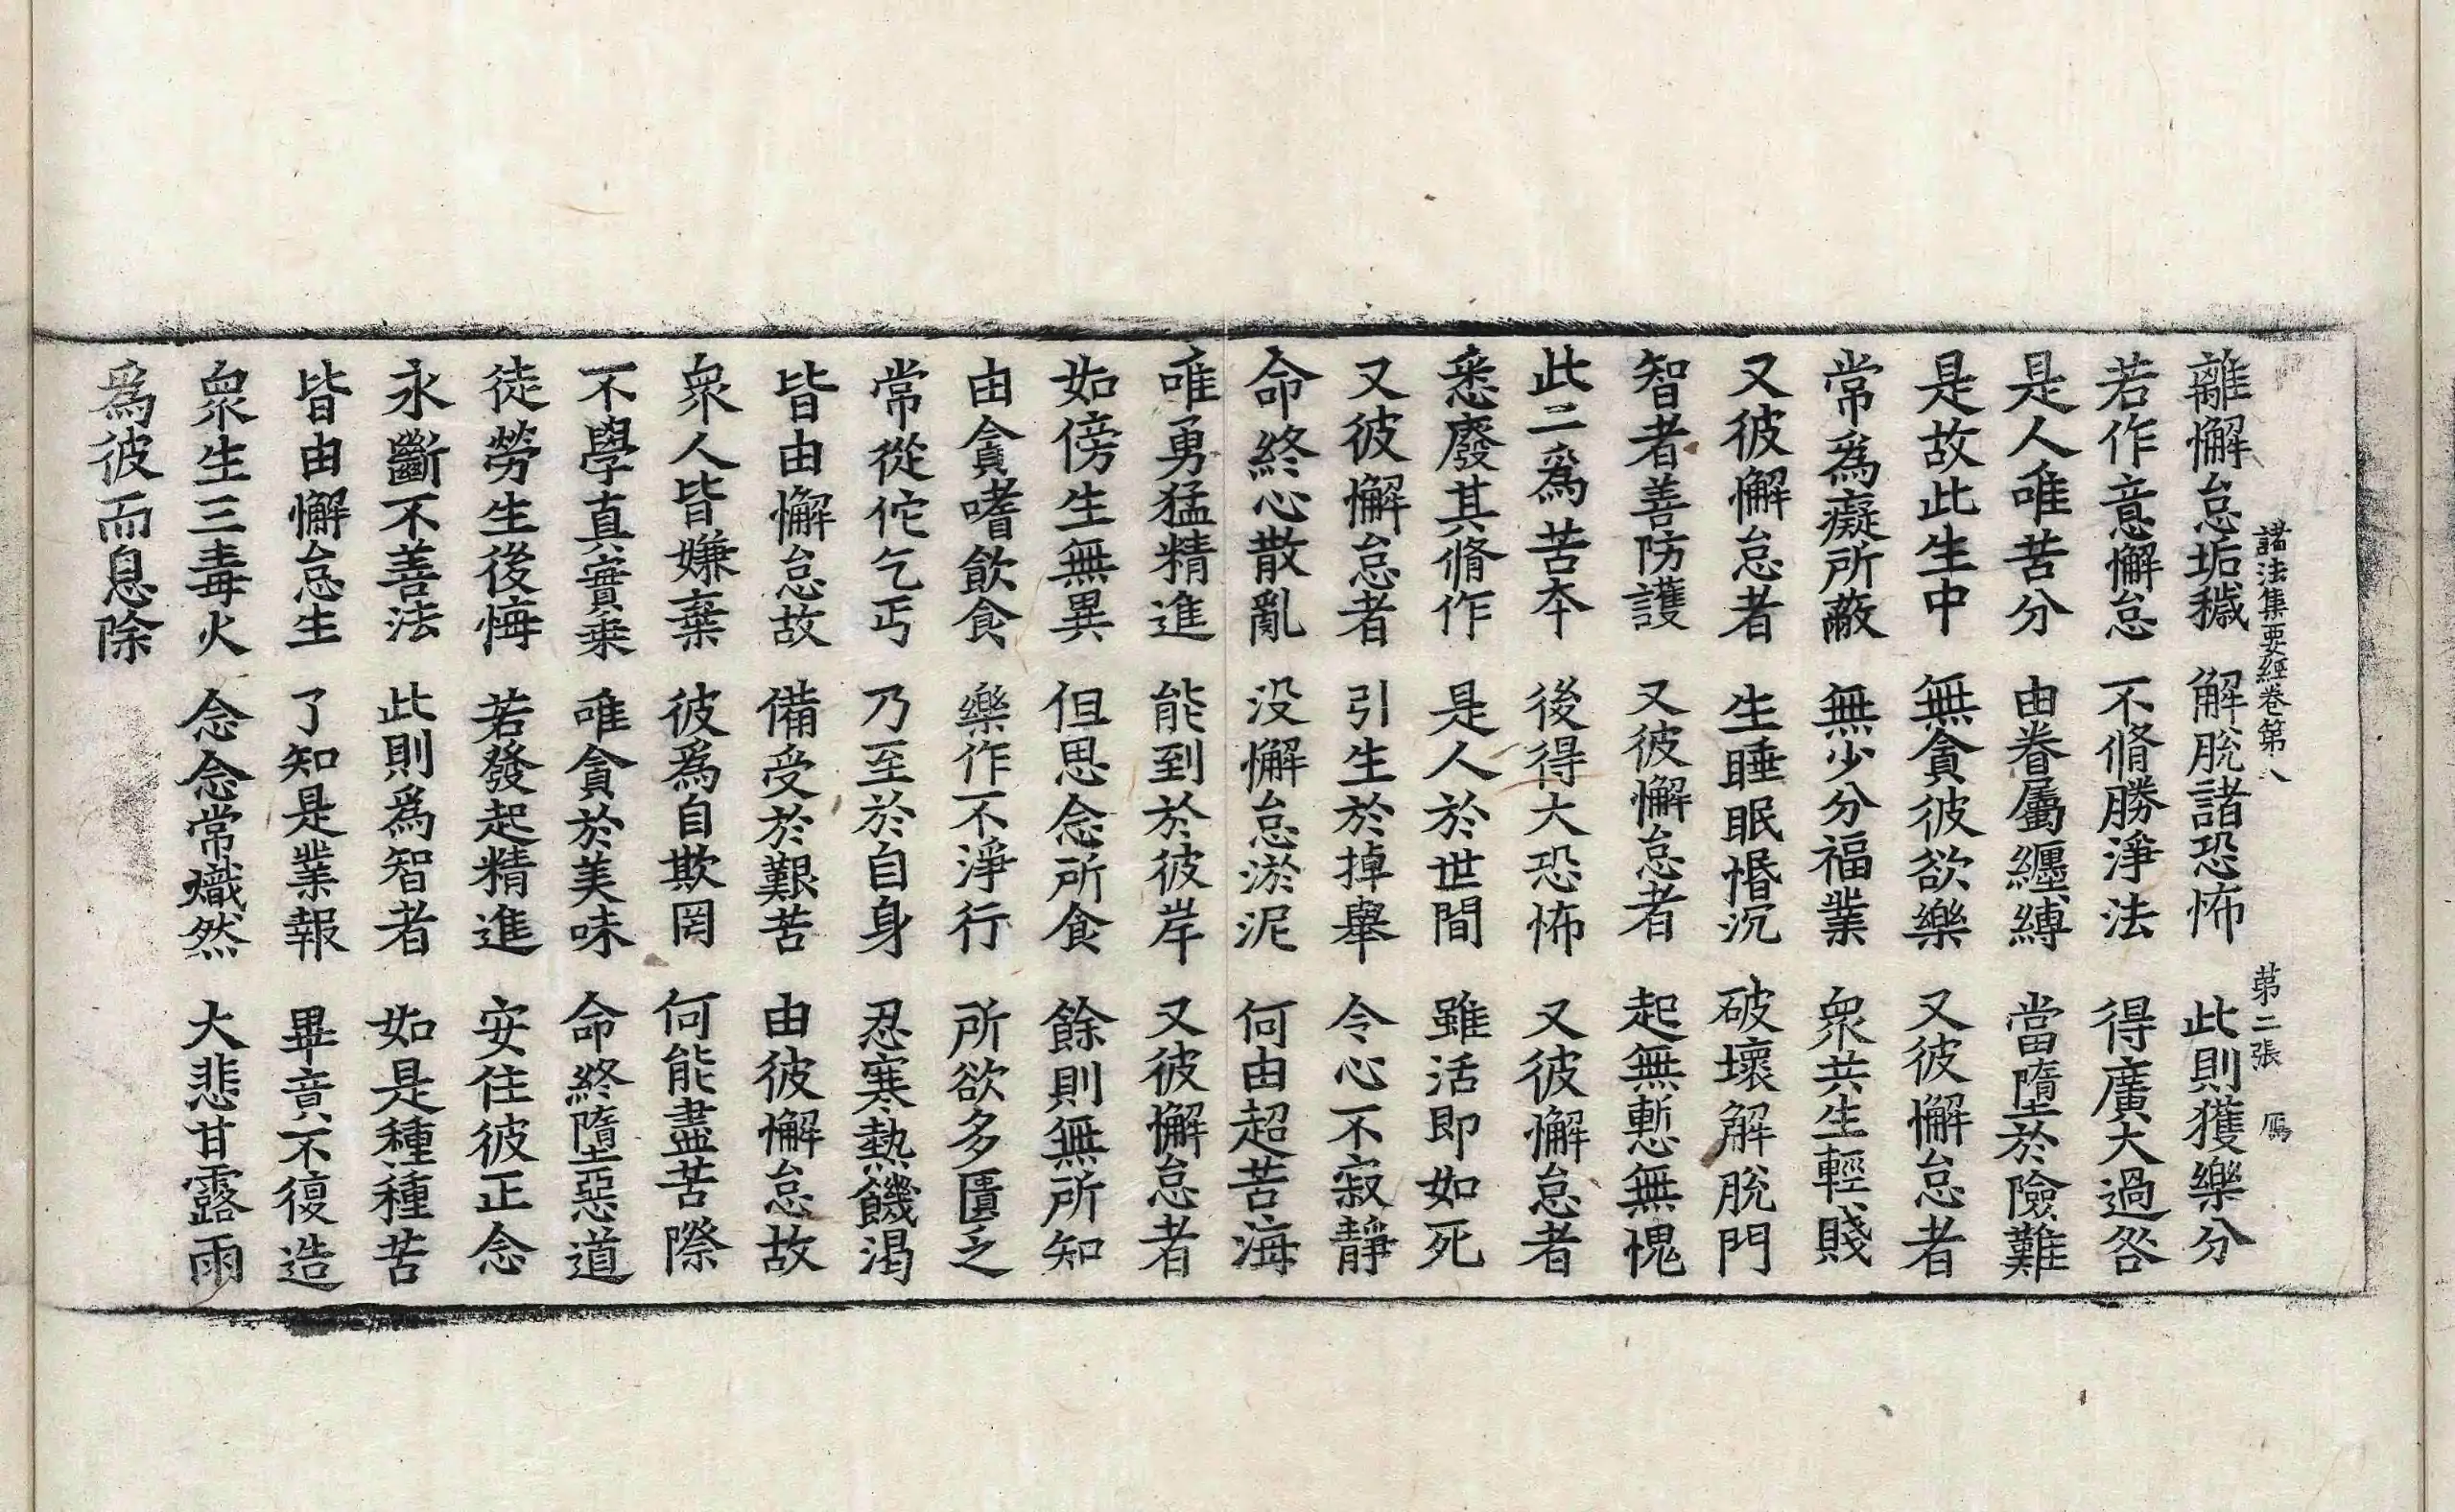 諸法集要經卷第八 第二張 鴈
離懈怠垢穢 解脫諸恐怖 此則獲樂分
若作意懈怠 不脩勝淨法 得廣大過咎
是人唯苦分 由眷屬纏縛 當墮於險難
是故此生中 無貪彼欲樂 又彼懈怠者
常爲癡所蔽 無少分福業 衆共生輕賤
又彼懈怠者 生睡眠惛沉 破壞解脫門
智者善防護 又彼懈怠者 起無慙無愧
此二爲苦夲 後得大恐怖 又彼懈怠者
悉廢其脩作 是人於世間 雖活即如死
又彼懈怠者 引生於掉舉 令心不寂靜
命終心散亂 没懈怠淤泥 何由超苦海
唯勇猛精進 能到於彼岸 又彼懈怠者
如傍生無異 但思念所食 餘則無所知
由貪嗜飲食 樂作不淨行 所欲多匱乏
常從佗乞丐 乃至於自身 忍寒熱饑渴
皆由懈怠故 備受於艱苦 由彼懈怠故
衆人皆嫌棄 彼爲自欺罔 何能盡苦際
不學真實乘 唯貪於美味 命終墮惡道
徒勞生後悔 若發起精進 安住彼正念
永斷不善法 此則爲智者 如是種種苦
皆由懈怠生 了知是業報 畢竟不復造
衆生三毒火 念念常熾然 大悲甘露雨
爲彼而息除